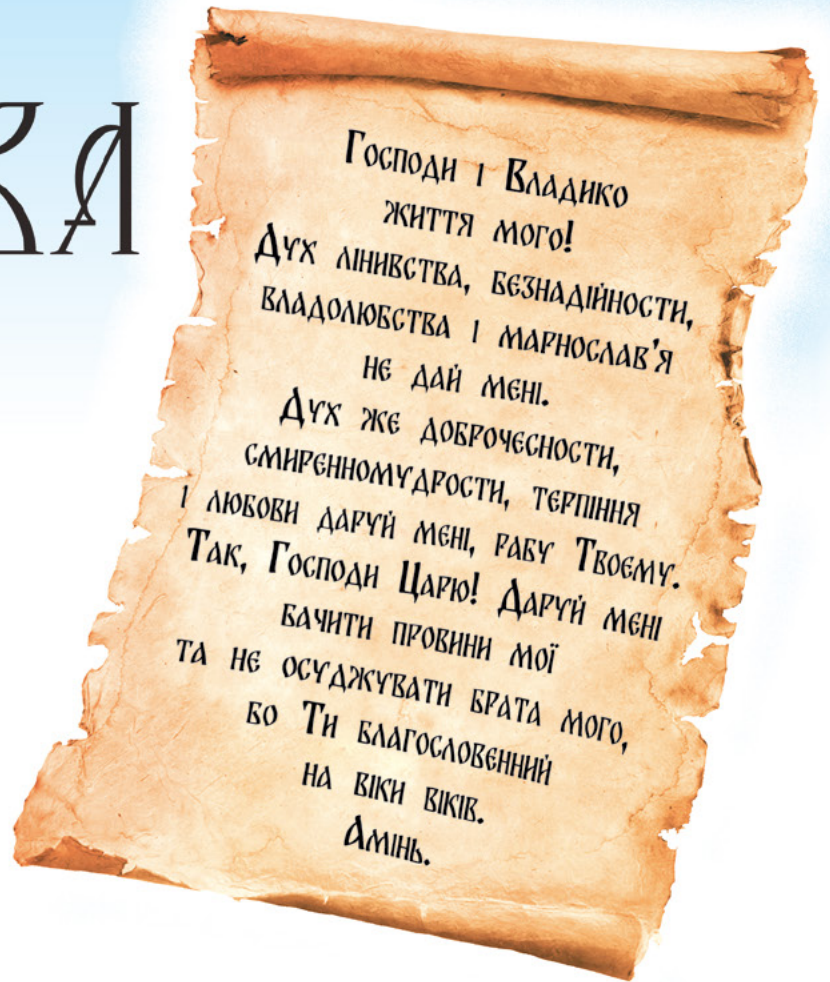 Господи і Владико
життя мого!
Дух лінивства, безнадійности,
владолюбства і марнослав'я
не дай мені.
Дух же доброчесности,
смиренномудрости, терпіння
і любови даруй мені, рабу Твоєму.
Так, Господи Царю! Даруй мені
бачити провини мої
та не осуджувати брата мого,
бо Ти благословенний
на віки віків.
Амінь.